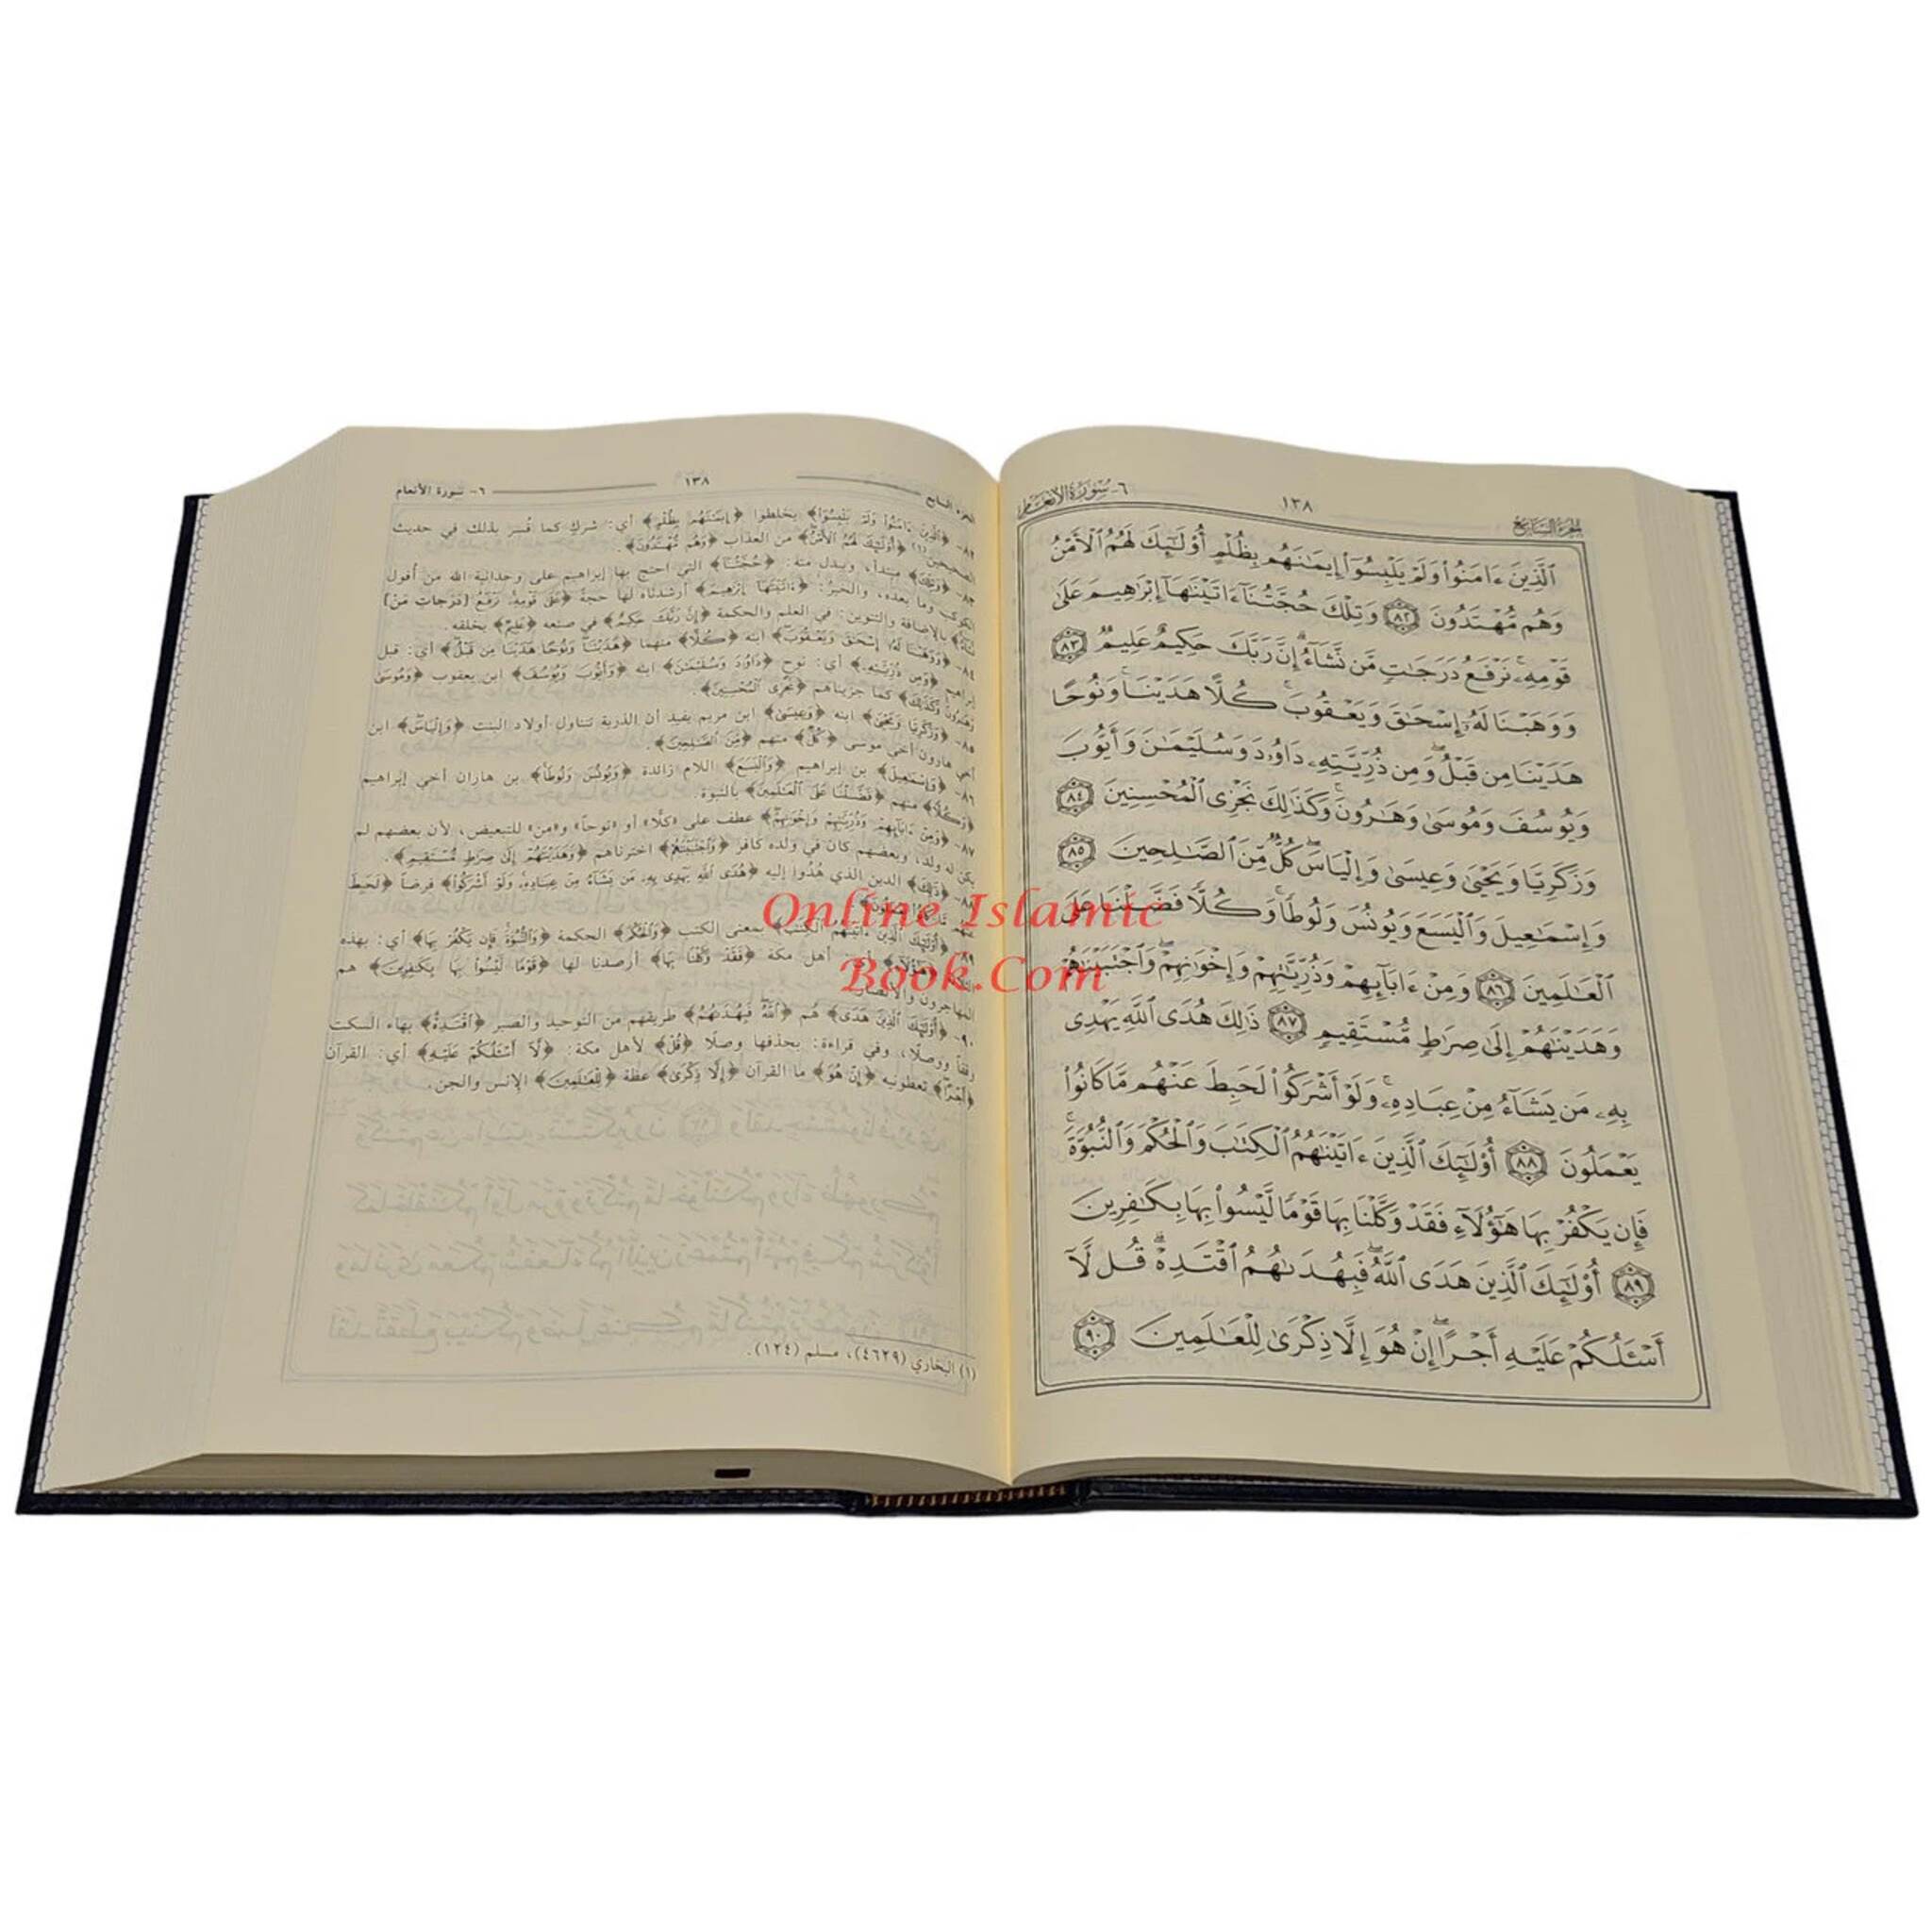 الجزء السابع
١٣٨
٦- سورة الأنعام
ٱلَّذِينَ ءَامَنُوا۟ وَلَمْ يَلْبِسُوٓا۟ إِيمَـٰنَهُم بِظُلْمٍ أُو۟لَـٰٓئِكَ لَهُمُ ٱلْأَمْنُ
وَهُم مُّهْتَدُونَ ٨٢ وَتِلْكَ حُجَّتُنَآ ءَاتَيْنَـٰهَآ إِبْرَٰهِيمَ عَلَىٰ
قَوْمِهِۦ ۚ نَرْفَعُ دَرَجَـٰتٍ مَّن نَّشَآءُ ۗ إِنَّ رَبَّكَ حَكِيمٌ عَلِيمٌ ٨٣
وَوَهَبْنَا لَهُۥٓ إِسْحَـٰقَ وَيَعْقُوبَ ۚ كُلًّا هَدَيْنَا ۚ وَنُوحًا
هَدَيْنَا مِن قَبْلُ ۖ وَمِن ذُرِّيَّتِهِۦ دَاوُۥدَ وَسُلَيْمَـٰنَ وَأَيُّوبَ
وَيُوسُفَ وَمُوسَىٰ وَهَـٰرُونَ ۚ وَكَذَٰلِكَ نَجْزِى ٱلْمُحْسِنِينَ ٨٤
وَزَكَرِيَّا وَيَحْيَىٰ وَعِيسَىٰ وَإِلْيَاسَ ۖ كُلٌّ مِّنَ ٱلصَّـٰلِحِينَ ٨٥
وَإِسْمَـٰعِيلَ وَٱلْيَسَعَ وَيُونُسَ وَلُوطًا ۚ وَكُلًّا فَضَّلْنَا عَلَى
ٱلْعَـٰلَمِينَ ٨٦ وَمِنْ ءَابَآئِهِمْ وَذُرِّيَّـٰتِهِمْ وَإِخْوَٰنِهِمْ ۖ وَٱجْتَبَيْنَـٰهُمْ
وَهَدَيْنَـٰهُمْ إِلَىٰ صِرَٰطٍ مُّسْتَقِيمٍ ٨٧ ذَٰلِكَ هُدَى ٱللَّهِ يَهْدِى
بِهِۦ مَن يَشَآءُ مِنْ عِبَادِهِۦ ۚ وَلَوْ أَشْرَكُوا۟ لَحَبِطَ عَنْهُم مَّا كَانُوا۟
يَعْمَلُونَ ٨٨ أُو۟لَـٰٓئِكَ ٱلَّذِينَ ءَاتَيْنَـٰهُمُ ٱلْكِتَـٰبَ وَٱلْحُكْمَ وَٱلنُّبُوَّةَ ۚ
فَإِن يَكْفُرْ بِهَا هَـٰٓؤُلَآءِ فَقَدْ وَكَّلْنَا بِهَا قَوْمًا لَّيْسُوا۟ بِهَا بِكَـٰفِرِينَ
٨٩ أُو۟لَـٰٓئِكَ ٱلَّذِينَ هَدَى ٱللَّهُ ۖ فَبِهُدَىٰهُمُ ٱقْتَدِهْ ۗ قُل لَّآ
أَسْـَٔلُكُمْ عَلَيْهِ أَجْرًا ۖ إِنْ هُوَ إِلَّا ذِكْرَىٰ لِلْعَـٰلَمِينَ ٩٠
الجزء السابع
١٣٨
٦- سورة الأنعام
٨٢- ﴿الَّذِينَ ءَامَنُوا وَلَمْ يَلْبِسُوا﴾ يخلطوا ﴿إِيمَـٰنَهُم بِظُلْمٍ﴾ أي: شرك كما فُسر بذلك في حديث
الصحيحين(١) ﴿أُوْلَـٰئِكَ لَهُمُ الْأَمْنُ﴾ من العذاب ﴿وَهُم مُّهْتَدُونَ﴾.
٨٣- ﴿وَتِلْكَ﴾ مبتدأ، ويبدل منه: ﴿حُجَّتُنَا﴾ التي احتج بها إبراهيم على وحدانية الله من أفول
الكوكب وما بعده، والخبرُ: ﴿ءَاتَيْنَـٰهَا إِبْرَٰهِيمَ﴾ أرشدناه لها حجةً ﴿عَلَىٰ قَوْمِهِۦ نَرْفَعُ [دَرَجاتِ مَنْ]
نَشَاءُ﴾ بالإضافة والتنوين: في العلم والحكمة ﴿إِنَّ رَبَّكَ حَكِيمٌ﴾ في صنعه ﴿عَلِيمٌ﴾ بخلقه.
٨٤- ﴿وَوَهَبْنَا لَهُ إِسْحَـٰقَ وَيَعْقُوبَ﴾ ابنه ﴿كُلًّا﴾ منهما ﴿هَدَيْنَا وَنُوحًا هَدَيْنَا مِن قَبْلُ﴾ أي: قبل
إبراهيم ﴿وَمِن ذُرِّيَّتِهِ﴾ أي: نوح ﴿دَاوُدَ وَسُلَيْمَـٰنَ﴾ ابنه ﴿وَأَيُّوبَ وَيُوسُفَ﴾ ابن يعقوب ﴿وَمُوسَىٰ
وَهَـٰرُونَ وَكَذَٰلِكَ﴾ كما جزيناهم ﴿نَجْزِي الْمُحْسِنِينَ﴾.
٨٥- ﴿وَزَكَرِيَّا وَيَحْيَىٰ﴾ ابنه ﴿وَعِيسَىٰ﴾ ابن مريم يفيد أن الذرية تتناول أولاد البنت ﴿وَإِلْيَاسَ﴾ ابن
أخي هارون أخي موسى ﴿كُلٌّ﴾ منهم ﴿مِّنَ الصَّـٰلِحِينَ﴾.
٨٦- ﴿وَإِسْمَـٰعِيلَ﴾ بن إبراهيم ﴿وَالْيَسَعَ﴾ اللام زائدة ﴿وَيُونُسَ وَلُوطًا﴾ بن هاران أخي إبراهيم
﴿وَكُلًّا﴾ منهم ﴿فَضَّلْنَا عَلَى الْعَـٰلَمِينَ﴾ بالنبوة.
٨٧- ﴿وَمِنْ ءَابَائِهِمْ وَذُرِّيَّـٰتِهِمْ وَإِخْوَٰنِهِمْ﴾ عطف على «كلًّا» أو «نوحاً» و«من» للتبعيض، لأن بعضهم لم
يكن له ولد، وبعضهم كان في ولده كافر ﴿وَاجْتَبَيْنَـٰهُمْ﴾ اخترناهم ﴿وَهَدَيْنَـٰهُمْ إِلَىٰ صِرَٰطٍ مُّسْتَقِيمٍ﴾.
٨٨- ﴿ذَٰلِكَ﴾ الدين الذي هُدُوا إليه ﴿هُدَى اللَّهِ يَهْدِي بِهِ مَن يَشَاءُ مِنْ عِبَادِهِ وَلَوْ أَشْرَكُوا﴾ فرضاً ﴿لَحَبِطَ
عَنْهُم مَّا كَانُوا يَعْمَلُونَ﴾.
٨٩- ﴿أُوْلَـٰئِكَ الَّذِينَ ءَاتَيْنَـٰهُمُ الْكِتَـٰبَ﴾ بمعنى الكتب ﴿وَالْحُكْمَ﴾ الحكمة ﴿وَالنُّبُوَّةَ فَإِن يَكْفُرْ بِهَا﴾ أي: بهذه
﴿هَـٰؤُلَاءِ﴾ أهل مكة ﴿فَقَدْ وَكَّلْنَا بِهَا﴾ أرصدنا لها ﴿قَوْمًا لَّيْسُوا بِهَا بِكَـٰفِرِينَ﴾ هم
المهاجرون والأنصار.
٩٠- ﴿أُوْلَـٰئِكَ الَّذِينَ هَدَى﴾ هُم ﴿اللَّهُ فَبِهُدَىٰهُمُ﴾ طريقهم من التوحيد والصبر ﴿اقْتَدِهْ﴾ بهاء السكت
وقفاً ووصلًا، وفي قراءة: بحذفها وصلًا ﴿قُل﴾ لأهل مكة: ﴿لَّا أَسْـَٔلُكُمْ عَلَيْهِ﴾ أي: القرآن
﴿أَجْرًا﴾ تعطونيه ﴿إِنْ هُوَ﴾ ما القرآن ﴿إِلَّا ذِكْرَىٰ﴾ عظة ﴿لِلْعَـٰلَمِينَ﴾ الإنس والجن.
(١) البخاري (٤٦٢٩)، مسلم (١٢٤).
Online Islamic
Book.Com